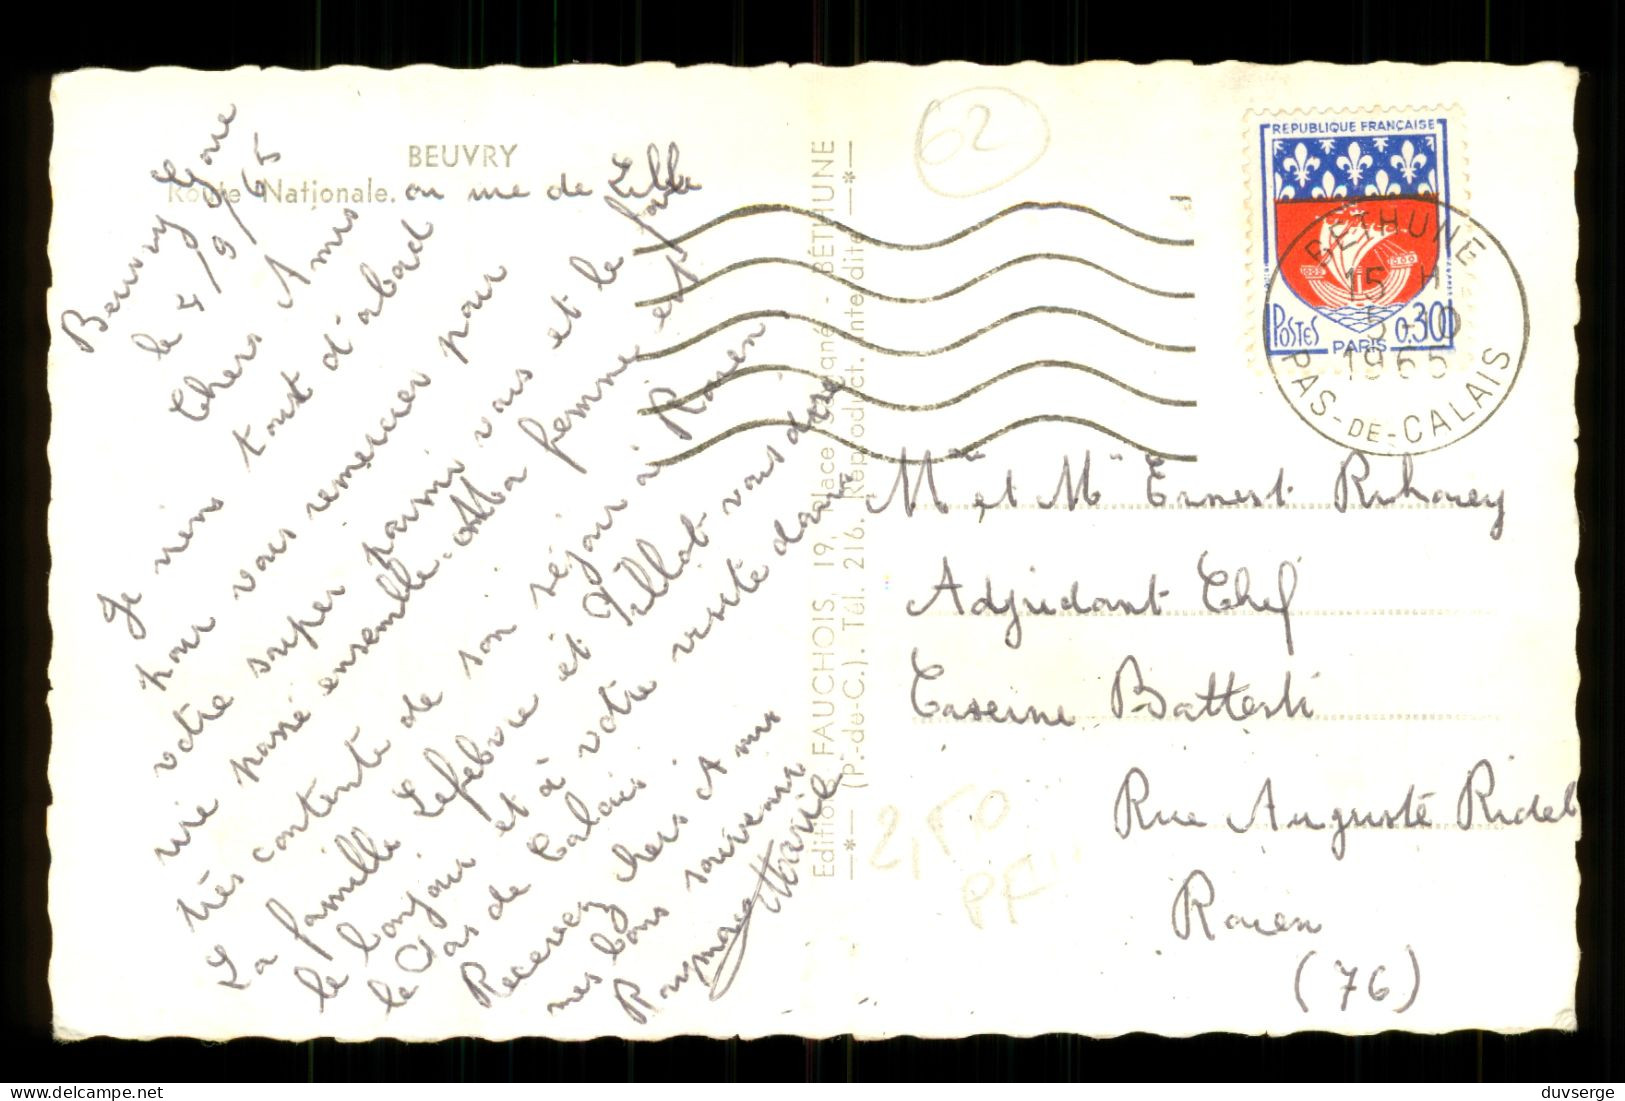 BEUVRY
Route Nationale. ou rue de Lille
Beuvry Gare
le 4/9/65
Chers Amis
Je viens tout d'abord
pour vous remercier pour
votre super parmi vous et le
vie passé ensemble. Ma femme est
très contente de son séjour à Rouen
La famille Lefebvre et Pillot vous donne
le bonjour et à votre visite dans
le Pas de Calais.
Recevez chers Amis
mes bons souvenirs
Edition FAUCHOIS, 19, place - BÉTHUNE
—*— (P.-de-C.). Tél. 216. Reproduct. interdite —*—
62
REPUBLIQUE FRANÇAISE
POSTES PARIS 0.30
BETHUNE
15 H
5-9
1965
PAS-DE-CALAIS
Mr et Me Ernest
Adjudant Chef
Caserne Battesti
Rue Auguste Ridel
Rouen
(76)
2,50
PF
duvserge